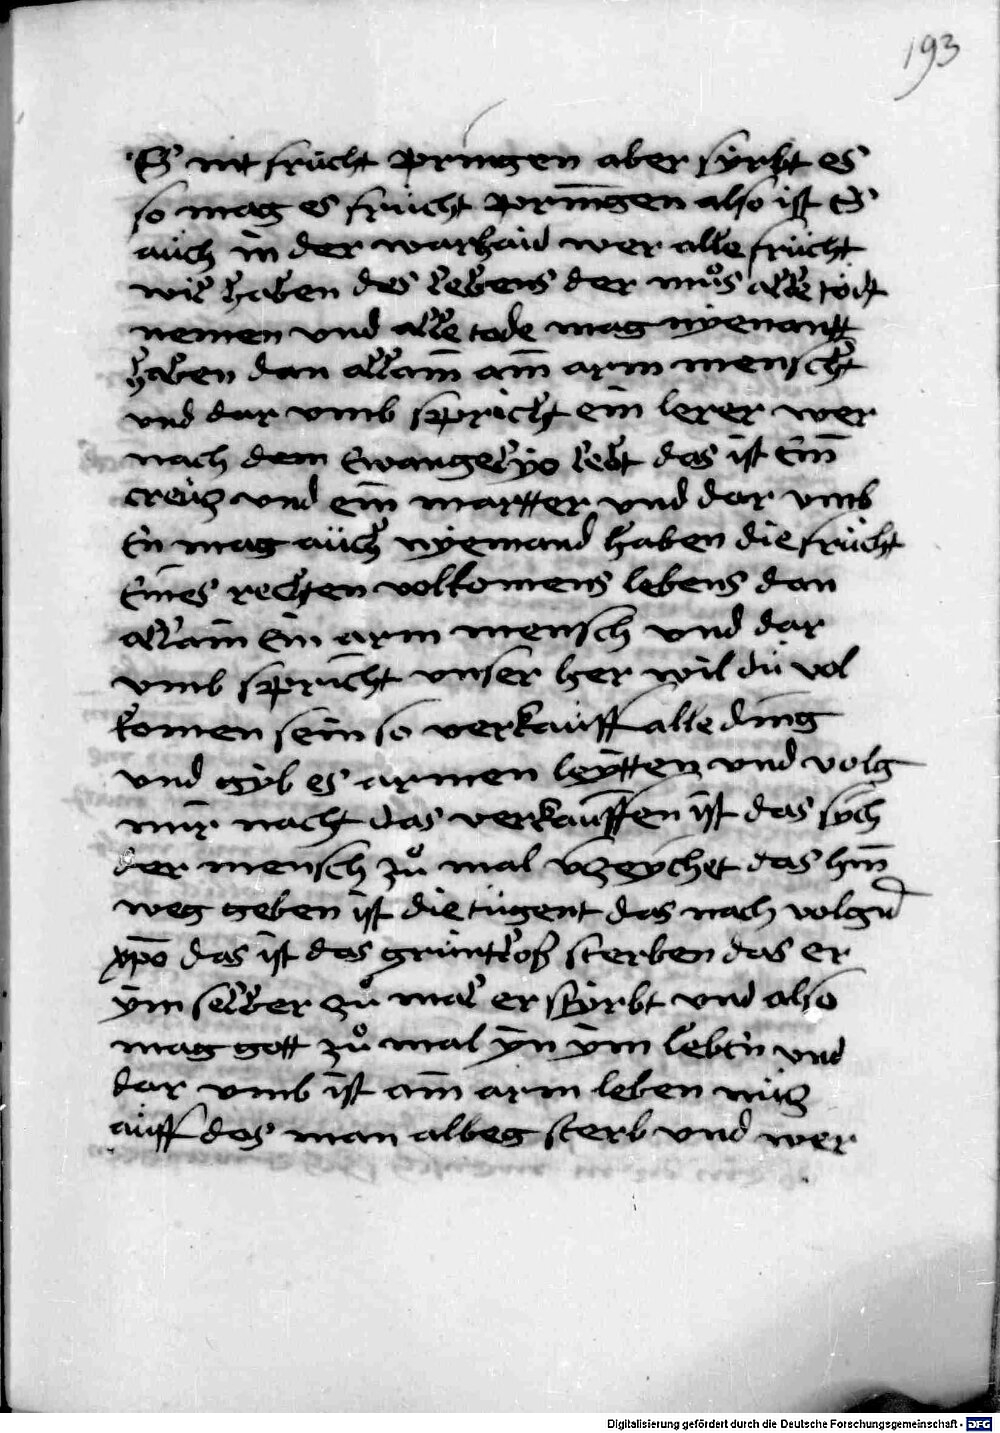 193
Es nit frücht pringen aber syrbt es
so mag es frücht pringen also ist Es
aüch in der warhaid wer alle frücht
wil haben des lebens der můs alle tödt
nemen vnd alle tode mag nyemantt
haben dan allain ain arm menscht
vnd dar vmb spricht ein lerer wer
nach dem Ewangelyo lebt das ist Ein
creütz vnd ein martter vnd dar vmb
En mag aüch nyemand haben die frücht
Eines rechten volkomens lebens dan
allain Ein arm mensch vnd dar
vmb spricht vnser her wil dü vol
komen sein so verkaüff alle ding
vnd gyb es armen leÿtten vnd volg
mir nacht das verkaüffen ist das sych
der mensch zů mal vzeychet das hin
weg geben ist die tügent das nach volgen
xpo das ist das grüntloß sterben das er
ym selber zů mal erstyrbt vnd also
mag gott zů mal yn ym leben vnd
dar vmb ist ain arm leben nütz
aüff das man albeg sterb vnd wer
Digitalisierung gefördert durch die Deutsche Forschungsgemeinschaft - DFG